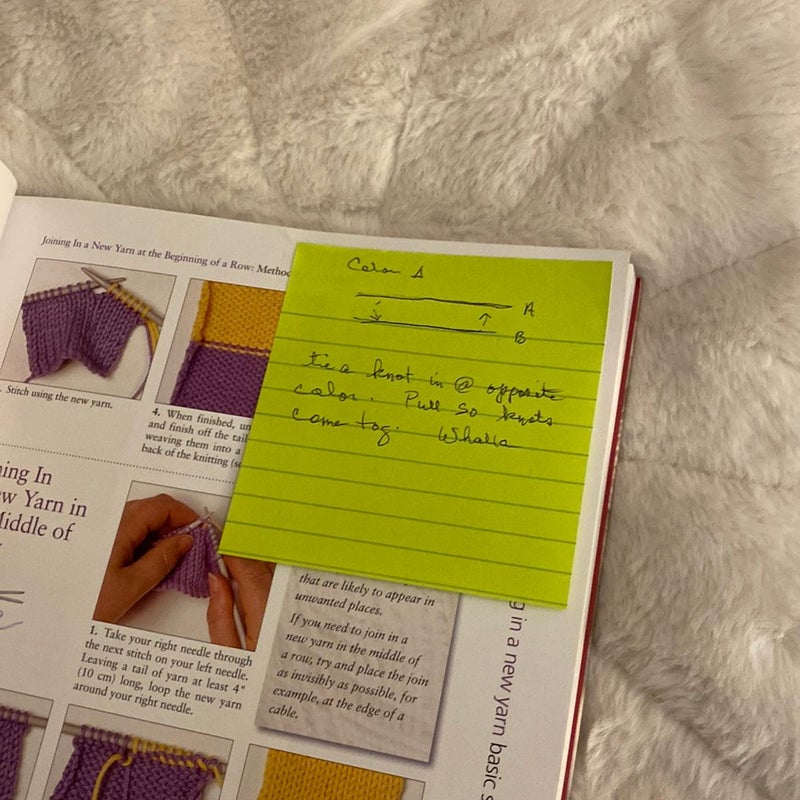 Joining In a New Yarn at the Beginning of a Row: Metho
Stitch using the new yarn.
4. When finished, un
and finish off the tail
weaving them into a
back of the knitting (s
Color A
A
B
tie a knot in @ opposite
color. Pull so knots
come tog. Whalla
ing In
w Yarn in
iddle of
1. Take your right needle through
the next stitch on your left needle.
Leaving a tail of yarn at least 4"
(10 cm) long, loop the new yarn
around your right needle.
that are likely to appear in
unwanted places.
If you need to join in a
new yarn in the middle of
a row, try and place the join
as invisibly as possible, for
example, at the edge of a
cable.
g in a new yarn basic s